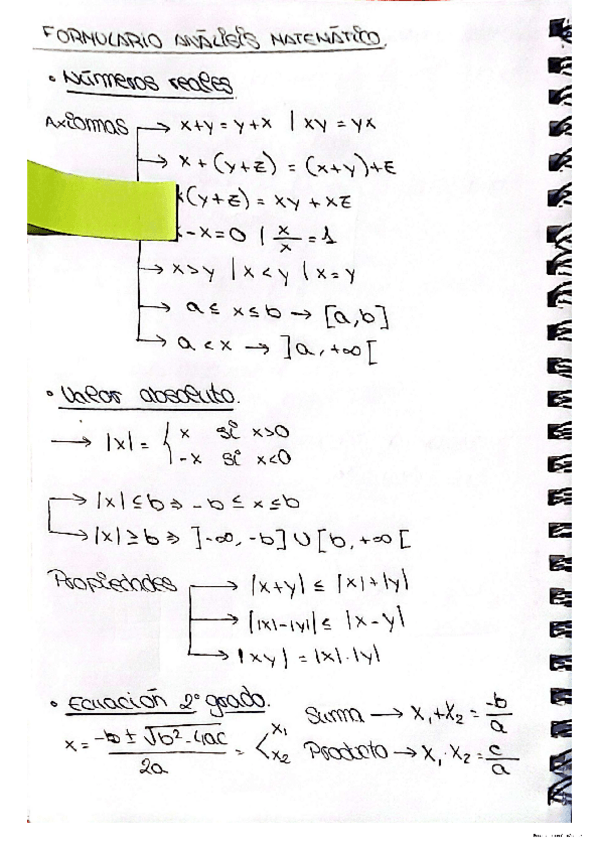 FORMULARIO ANÁLISIS MATEMÁTICO.
• Números reales
Axiomas → x+y = y+x | xy = yx
→ x + (y+z) = (x+y)+z
x(y+z) = xy + xz
x-x=0 | x/x = 1
→ x>y | x<y | x=y
→ a ≤ x ≤ b → [a,b]
→ a < x → ]a, +∞[
• Valor absoluto.
→ |x| = { x si x>0
-x si x<0
→ |x| ≤ b ⇒ -b ≤ x ≤ b
→ |x| ≥ b ⇒ ]-∞, -b] ∪ [b, +∞[
Propiedades → |x+y| ≤ |x|+|y|
→ ||x|-|y|| ≤ |x-y|
→ |xy| = |x|·|y|
• Ecuación 2º grado.
x = (-b ± √(b²-4ac))/2a = < x₁ x₂
Suma → x₁+x₂ = -b/a
Producto → x₁·x₂ = c/a